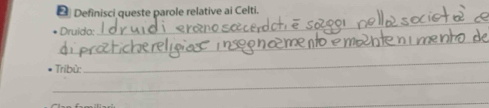 2 Definisci queste parole relative ai Celti.
• Druido: I druidi erano sacerdoti e saggi nella società ce
di pratiche religiose insegnamento e mantenimento de
• Tribù: